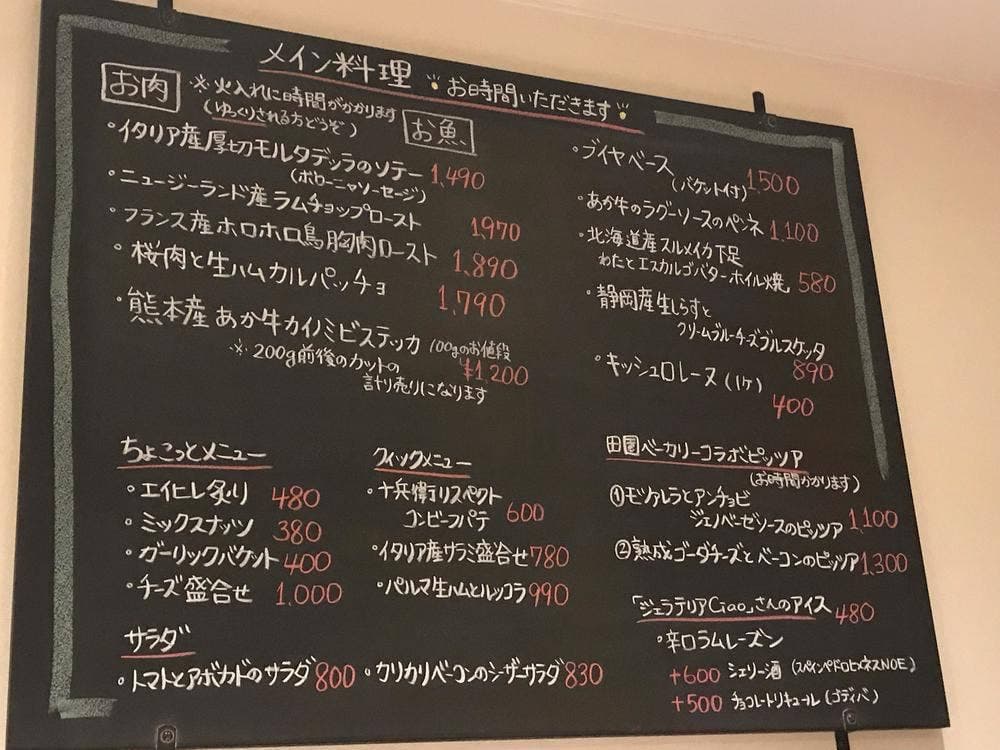 メイン料理 お時間いただきます
お肉
※火入れに時間がかかります
(ゆっくりされる方どうぞ)
お魚
・イタリア産厚切モルタデッラのソテー 1,490
(ボローニャソーセージ)
・ニュージーランド産ラムチョップロースト 1,970
・フランス産ホロホロ鳥胸肉ロースト 1,890
・桜肉と生ハムカルパッチョ 1,790
・熊本産あか牛カイノミビステッカ 100gのお値段
¥1,200
※200g前後のカットの
計り売りになります
・ブイヤベース
(バケット付) 1,500
・あか牛のラグーソースのペンネ 1,100
・北海道産スルメイカ下足
わたとエスカルゴバターホイル焼 580
・静岡産生しらすと
クリームブルーチーズブルスケッタ
890
・キッシュロレーヌ (1ヶ)
400
ちょこっとメニュー
・エイヒレ炙り 480
・ミックスナッツ 380
・ガーリックバケット 400
・チーズ盛合せ 1,000
クイックメニュー
・十兵衛リスペクト
コンビーフパテ 600
・イタリア産サラミ盛合せ 780
・パルマ生ハムとルッコラ 990
サラダ
・トマトとアボカドのサラダ 800
・カリカリベーコンのシーザーサラダ 830
田園ベーカリーコラボピッツァ
(お時間かかります)
①モッツァレラとアンチョビ
ジェノベーゼソースのピッツァ 1,100
②熟成ゴーダチーズとベーコンのピッツァ 1,300
「ジェラテリアCiao」さんのアイス 480
・辛口ラムレーズン
+600 シェリー酒 (スペインペドロヒメネスNOE)
+500 チョコレートリキュール (ゴディバ)